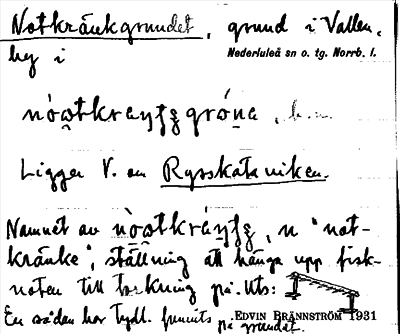 Notkränkgrundet, grund i Vallen,
by i Nederluleå sn o. tg. Norrb. l.
Ligger V. om Rysskataviken.
Namnet av n "not-
kränke", ställning att hänga upp fisk-
noten till torkning på. Uts:
En sådan har tydl. funnits på grundet.
EDVIN BRÄNNSTRÖM 1931